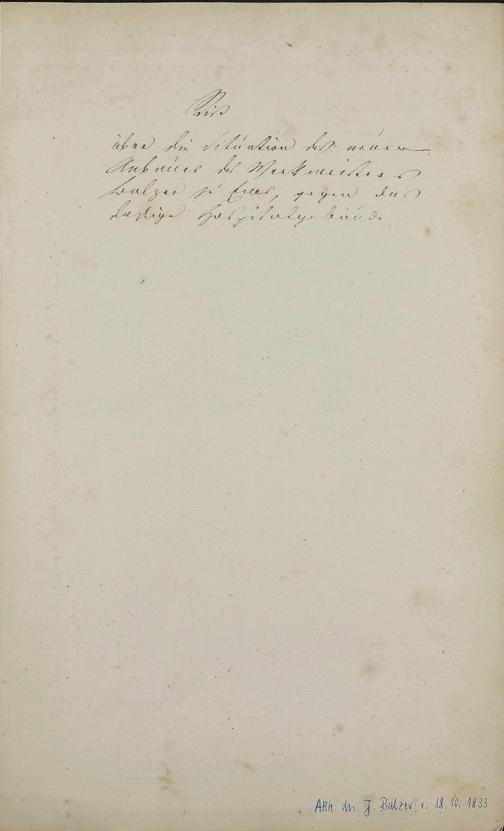 Riß
über die Situation des neuen
Anbaues des Werkmeisters
Balzer zu Ems, gegen das
dasige Hospitalgebäude
J. Balzer v. 18.10.1833